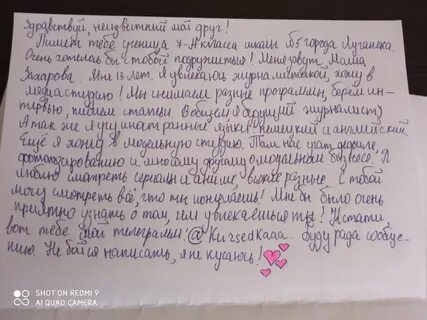 Здравствуй, неизвестный мой друг!
Пишет тебе ученица 7-А класса школы №5 города Луганска.
Очень хотелось бы с тобой подружиться! Меня зовут Маша
Захарова. Мне 13 лет. Я увлекаюсь журналистикой, хожу в
медиастудию! Мы снимаем разные программы, берём ин-
тервью, пишем статьи. В общем я будущий журналист)
А так же я учу иностранные языки: немецкий и английский.
Ещё я хожу в модельную студию. Там нас учат дефиле,
фотографированию и многому другому о модельном бизнесе. Я
люблю смотреть сериалы и аниме, всякие разные. С тобой
могу смотреть всё, что ты пожелаешь! Мне бы было очень
приятно узнать о том, чем увлекаешься ты! Кстати,
вот тебе мой телеграмм: @Kursedkaaa. Буду рада сообще-
нию. Не бойся написать, я не кусаюсь!
SHOT ON REDMI 9
AI QUAD CAMERA